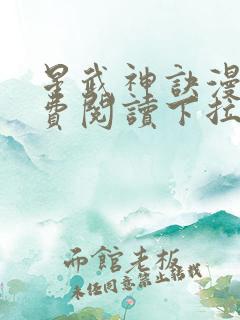 星武神訣漫
費閱讀下拉
而館老板
未经同意禁止转载